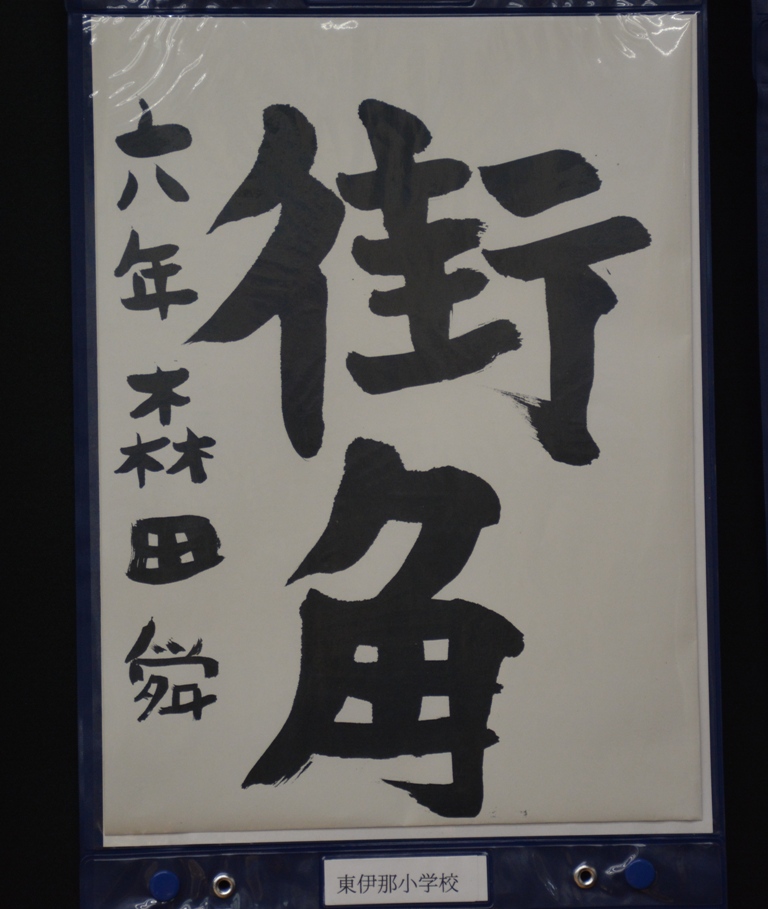 街角
六年 森田 舜
東伊那小学校